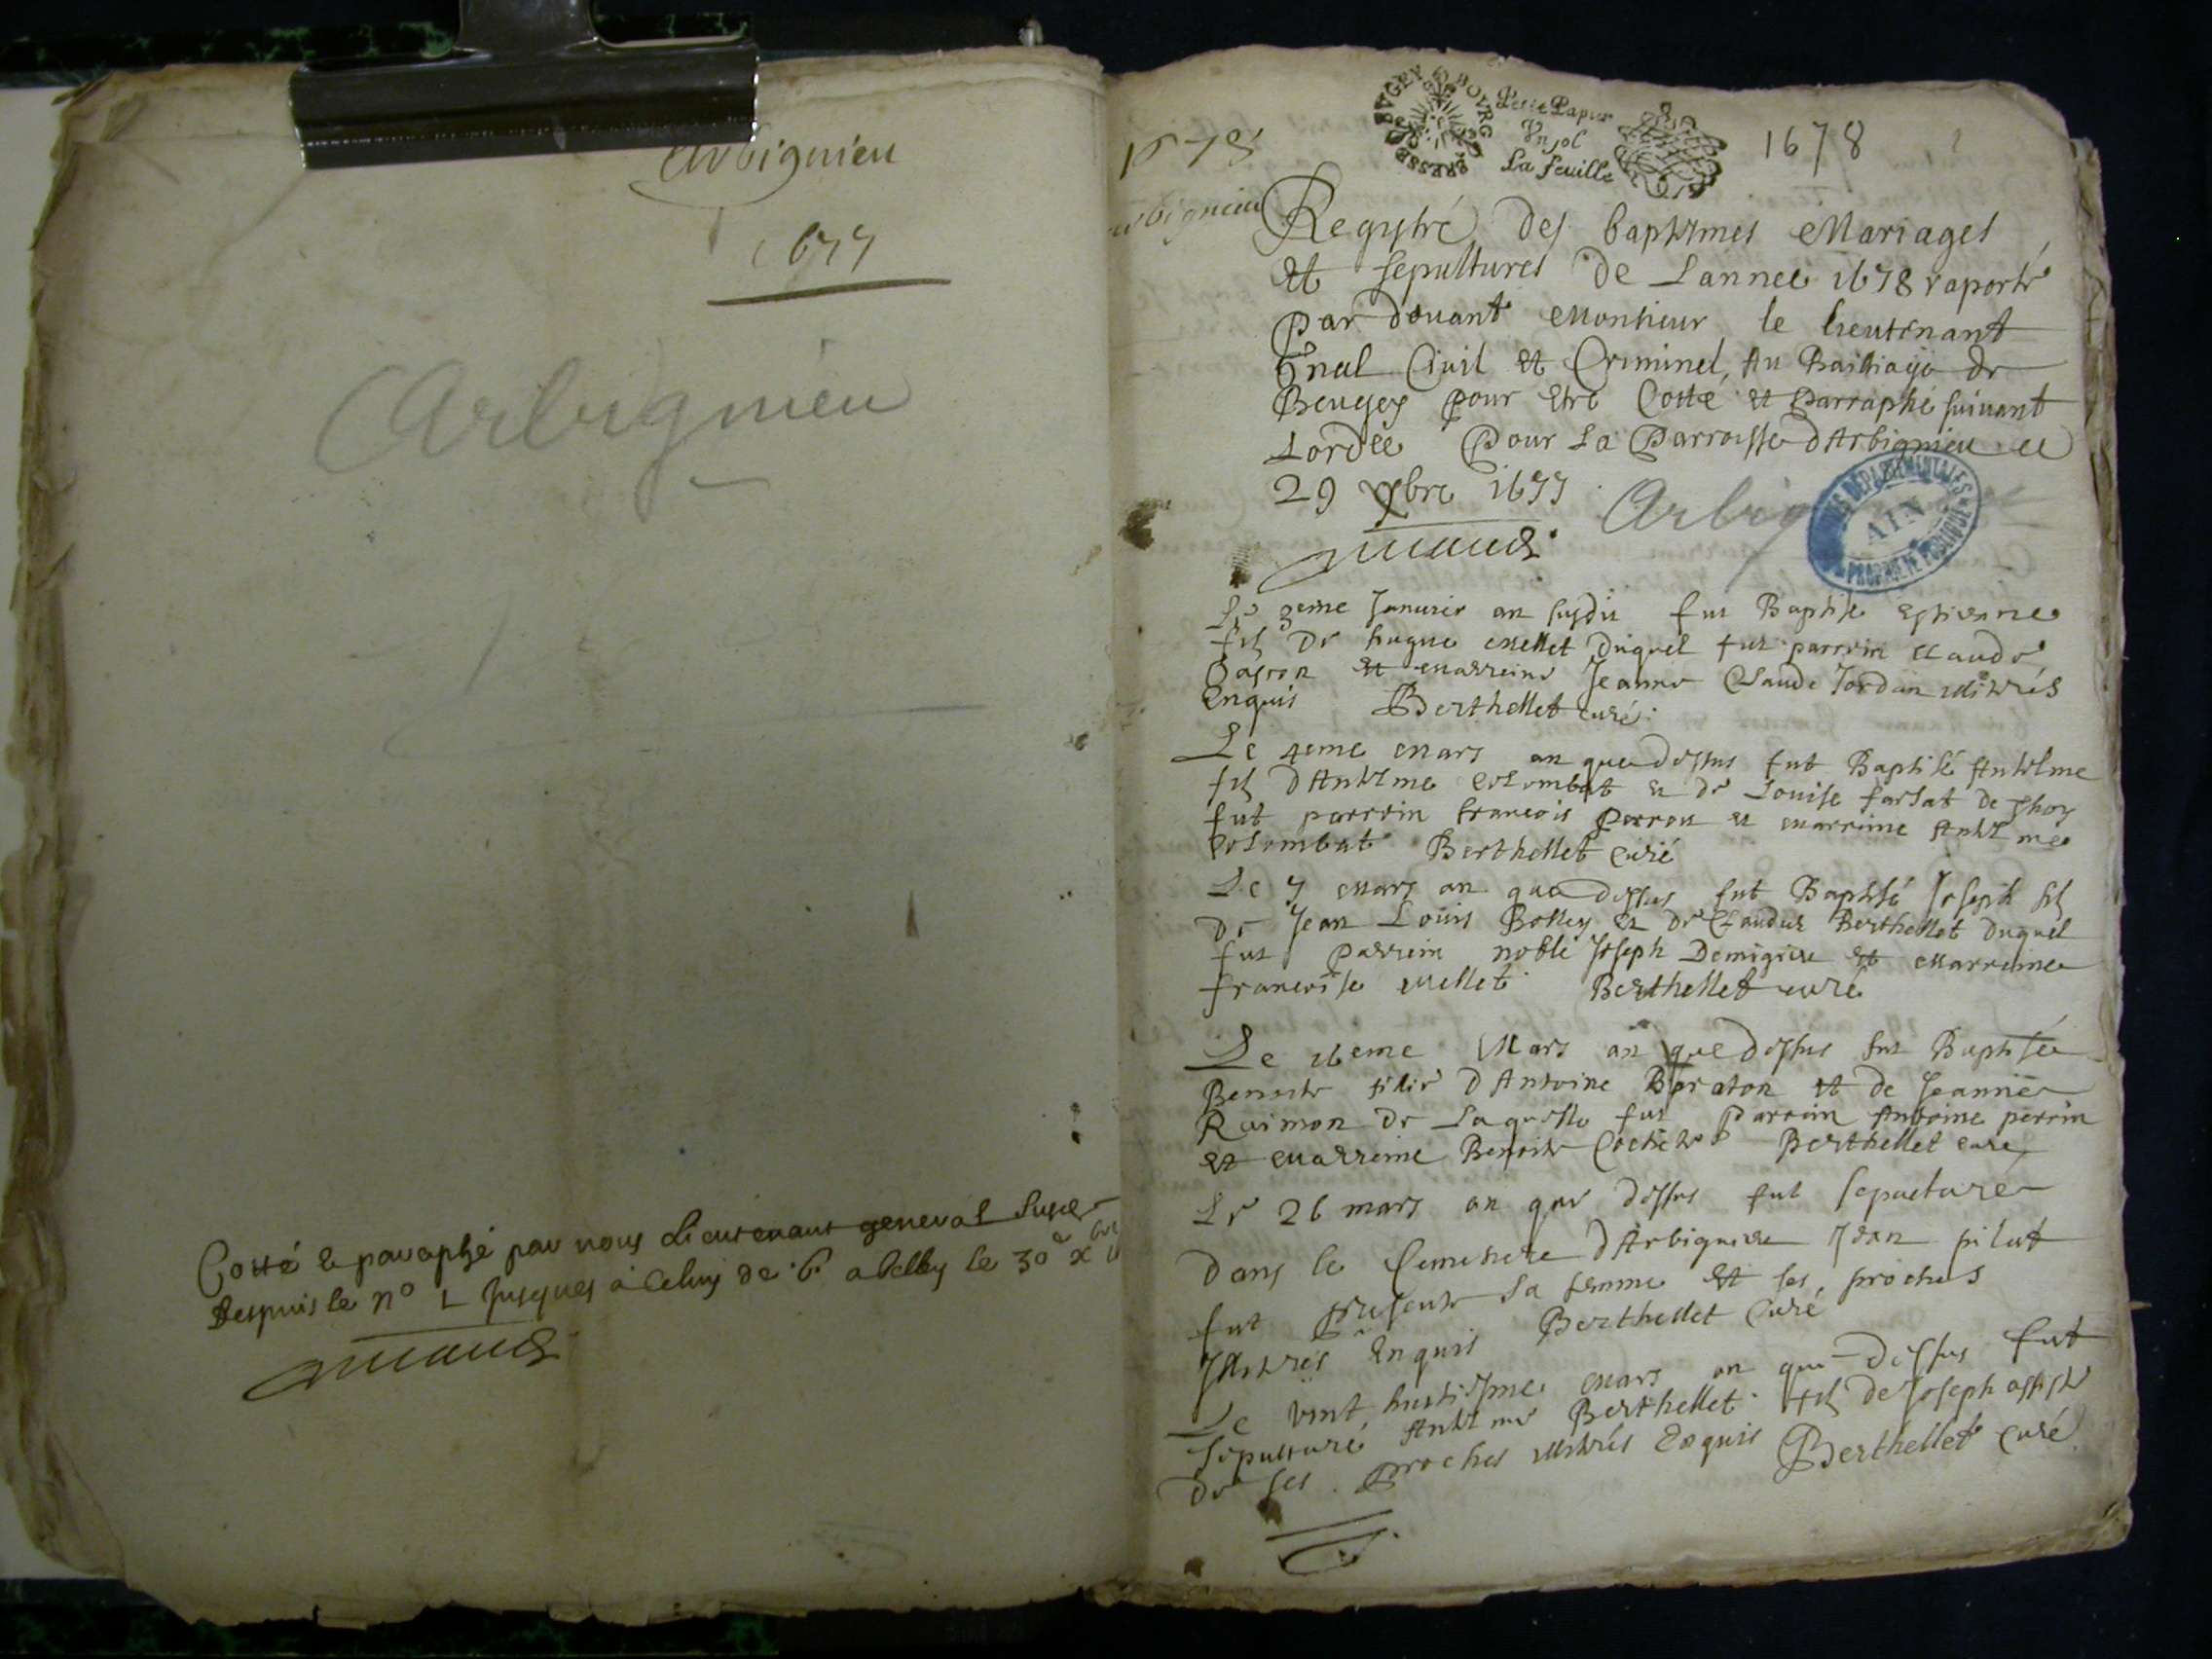 Arbignieu
1677
Arbignieu
Cotté & paraphé par nous Lieutenant general
despuis le n° 1 jusques a Celuy de 6 a belley le 30e xbre
1678
Arbignieu
BVGEY BOVRG BRESSE
Petit Papier
Vn sol
La feuille
1678
Regystré des baptesmes Mariages
et sepultures de Lannee 1678 raporté
par douant Monsieur le lieutenant
Gnal Ciuil et Criminel, Au Bailliage de
Beugey pour etre Cotté et Parraphé suiuant
Lordce Pour La Parroisse dArbignieu ce
29 xbre 1677
Arbig
ARCHIVES DEPARTEMENTALES
AIN
PROPRIETE PUBLIQUE
Le 3eme Januier an susdit fut Baptisé Estienne
fils de hugue Mellet duquel fut parrein Claude
et Marreine Jeanne Claude Jordan illitrés
Enquis Berthellet curé
Le 4eme Mars an que dessus fut Baptisé Anthelme
fils dAnthelme Colombat et de Louise farsat de
fut parrein francois Perret et Marreine Anthelmé
Colombat Berthellet Curé
Le 7 Mars an que dessus fut Baptisé Joseph fils
de Jean Louis Bolley et de Claudee Berthellet duquel
fut Parrein noble Joseph Demigieu et Marreine
francoise Mellet Berthellet curé
Le 16eme Mars an que dessus fut Baptisée
Benoite fillie dAntoine Boraton et de Jeanne
Raimon de Laquelle fut Parrein Antoine perrin
et Marreine Benoite Berthellet curé
Le 26 mars an que dessus fut sepulturé
Dans le Cimetiere dArbignieu Jean pilut
fut presente sa femme et ses proches
Illitrés Enquis Berthellet Curé
Le vint huitiesme Mars an que dessus fut
sepulturé Anthelme Berthellet fils de Joseph assisté
de ses proches illitrés Enquis Berthellet Curé